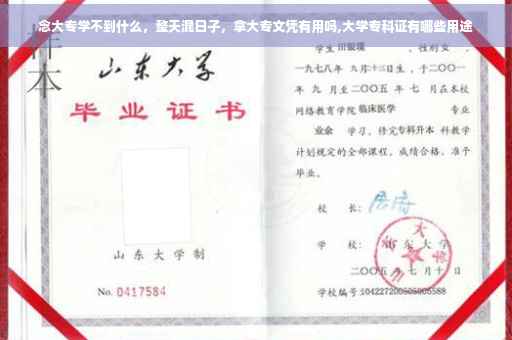 念大专学不到什么，整天混日子，拿大专文凭有用吗,大学专科证有哪些用途
样本
山东大学
毕业证书
山东大学制
No. 0417584
学生
性别女，
一九七八年 九月十三日生，于二〇〇一
年 九 月至二〇〇五 年 七 月在本校
网络教育学院 临床医学 专业
业余 学习，修完专科升本 科教学
计划规定的全部课程，成绩合格，准予
毕业。
校 长：
学 校： 山东大学
二〇〇五 年 七 月 十 日
学校编号:104227200505005588